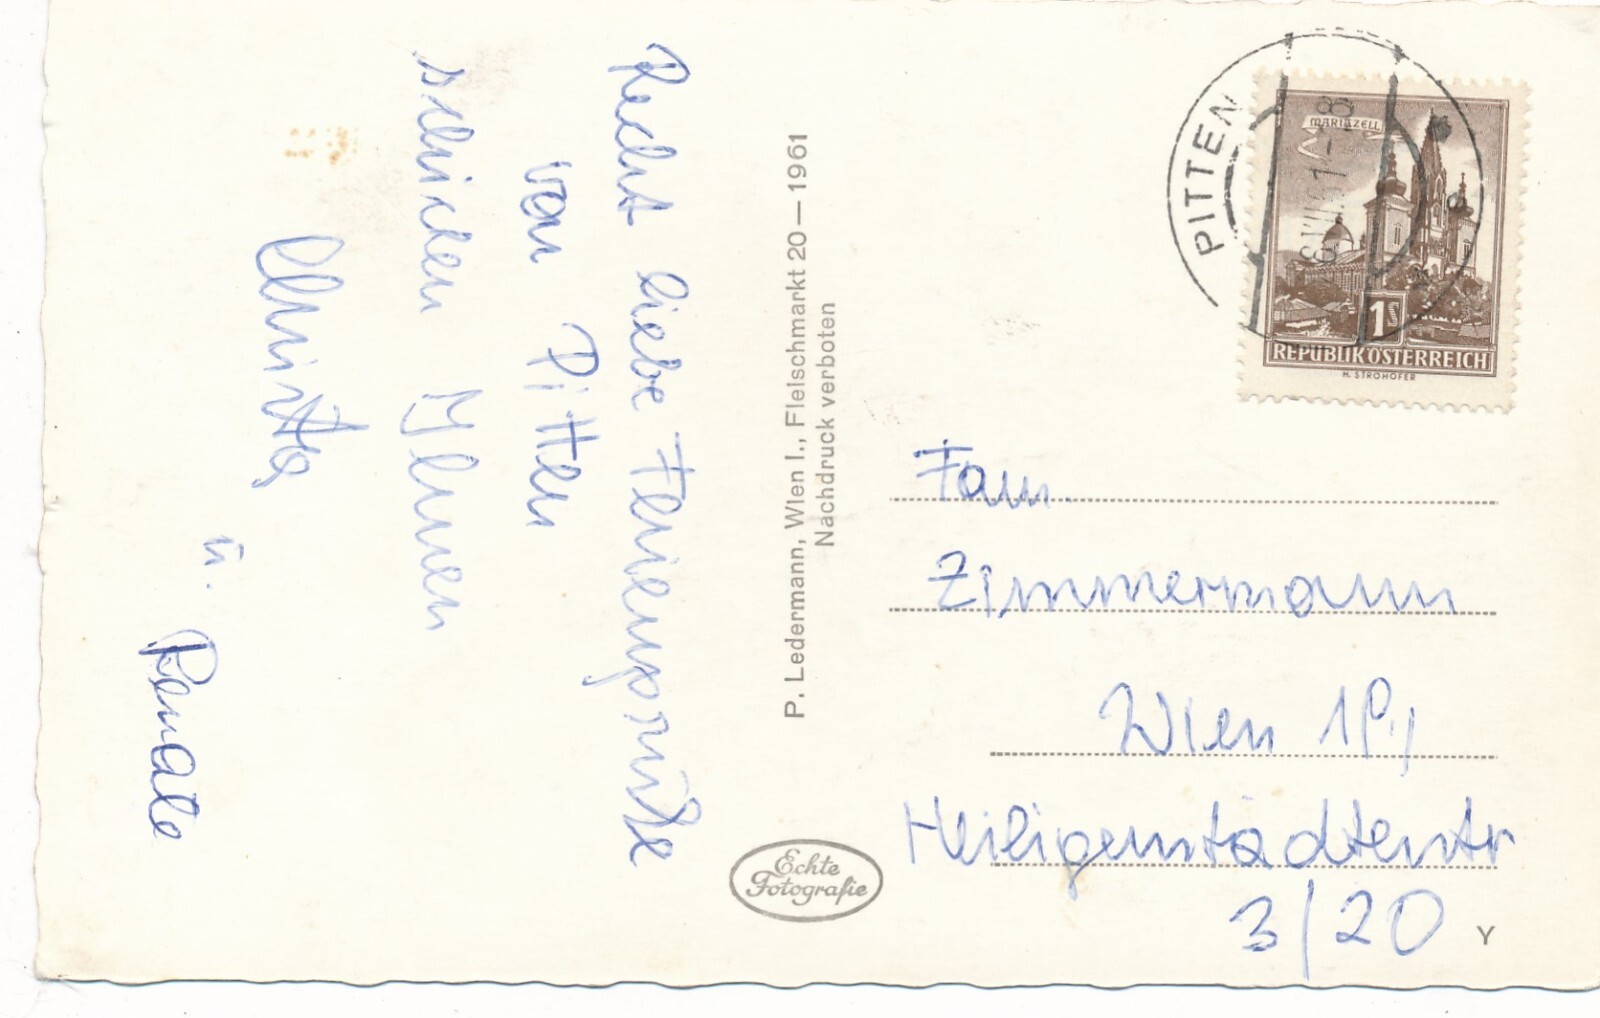 Recht liebe Feriengrüße
von Pitten
schicken Ihnen
Christa
u. Renate
P. Ledermann, Wien I., Fleischmarkt 20 — 1961
Nachdruck verboten
Echte
Fotografie
PITTEN
MARIAZELL
1S
REPUBLIK ÖSTERREICH
H. STROHOFER
Fam.
Zimmermann
Wien 19,
Heiligenstädterstr
3/20
Y